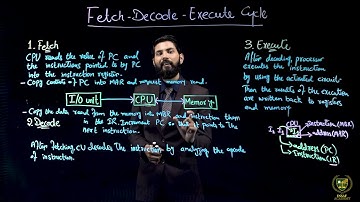 Fetch-Decode-Execute Cycle
1. Fetch
CPU reads the value of PC and
the instructions pointed to by PC
into the instruction register.
- Copy contents of PC into MAR and request memory read.
I/O unit
CPU
Memory
- Copy the data read from the memory into MBR and instruction then
in the IR. Increment PC so that it points to the
next instruction.
2. Decode
After fetching, CU decodes the instruction by analyzing the opcode
of instruction.
3. Execute
After decoding, processor
executes the instruction
by using the activated circuit.
Then results of the execution
are written back to registers
and memory
CPU
instruction (MBR)
address (MAR)
address (PC)
Instruction (IR)